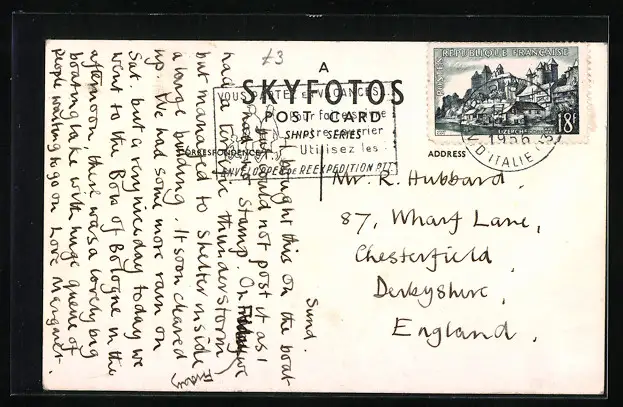 £3
A
SKYFOTOS
POST CARD
SHIPS SERIES
CORRESPONDENCE
ADDRESS
REPUBLIQUE FRANÇAISE
POSTES
UZERCHE
18F
1956
D'ITALIE
VOUS PARTEZ EN VACANCES
Pour faire
suivre
courrier
Utilisez les
ENVELOPPES de REEXPEDITION PTT
Mr. R. Hubbard.
87, Wharf Lane,
Chesterfield,
Derbyshire,
England.
Sund.
I bought this on the boat
but could not post it as I
had no stamp. On Friday we
had a terrific thunderstorm
but managed to shelter inside
a large building. It soon cleared
up. We had some more rain on
Sat. but a very nice day today we
went to the Bois of Bologne in the
afternoon, there was a lovely big
boating lake with huge queue of
people waiting to go on Love Margaret.